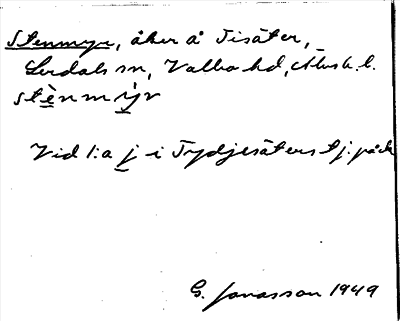 Stenmyr, åker å Tisäter,
Lerdals sn, Valbo hd,
stènmy̆r
Vid 1:a j i Tydjesäters tj.
G. Jonasson 1949